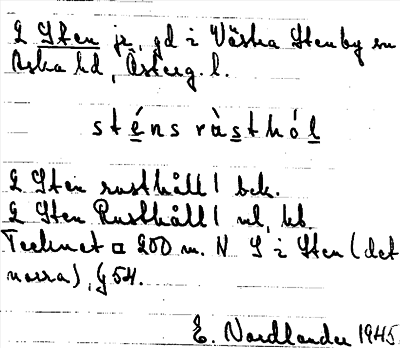 L Sten jr, gd i Västra Stenby sn
Aska hd, Österg. l.
sténs ràsthól
L Sten rusthåll | bek.
L Sten Rusthåll | ul, hb.
Tecknet □ 200 m. N S i Sten (det
norra), G 54.
E. Nordlander 1945.